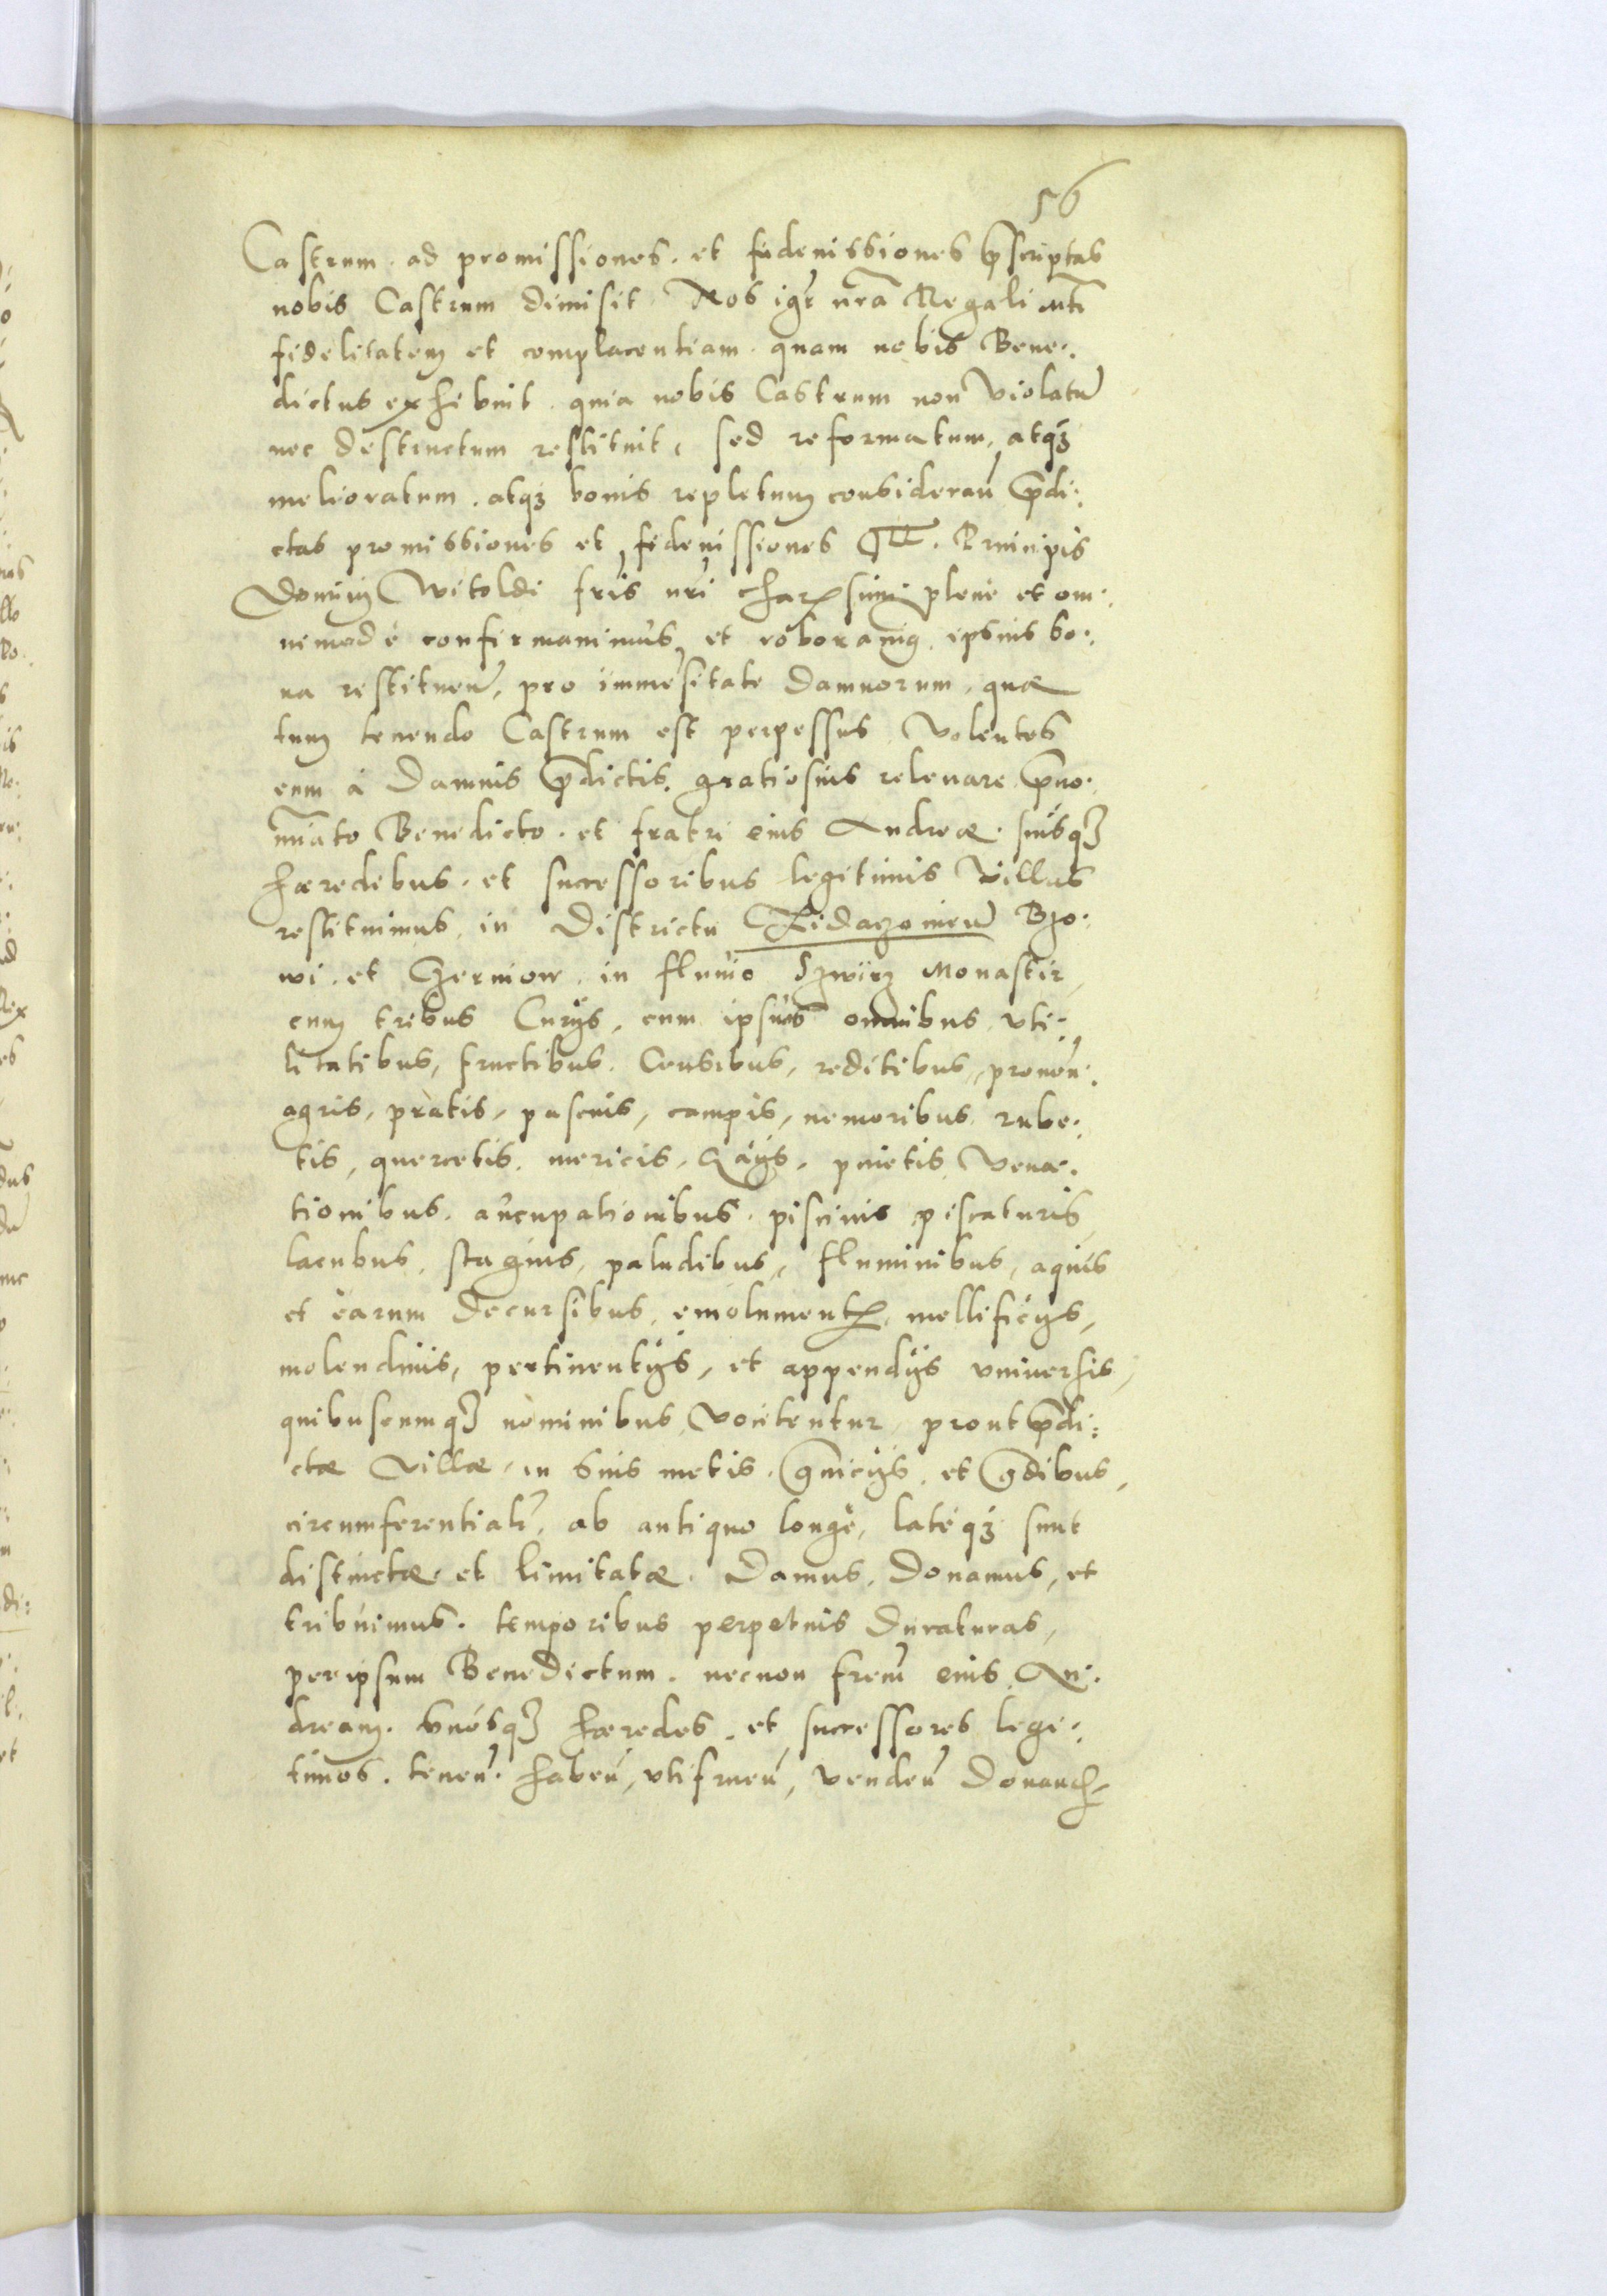 56
Castrum. ad promissiones. et fideiussiones p̄scriptas
nobis Castrum dimisit. Nos igr̄ nr̄a Regali mt̄i
fidelitatem et complacentiam. quam nobis Bene:
dictus exhibuit. quia nobis Castrum non violatū
nec destructum restituit, sed reformatum, atq3
melioratum. atq3 bonis repletum consideran̄ p̄di:
ctas promissiones et fideiussiones Principis
Domini Witoldi fr̄is nr̄i char̄simi plenè et om:
nimodè confirmauimus, et roboramꝰ ipsius bo:
na restituen̄, pro immēsitate damnorum, quæ
tum tenendo Castrum est perpessus. Volentes
eum à damnis p̄dictis. gratiosius releuare p̄no:
mīato Benedicto. et fratri eius Andreæ. suisq3
hæredibus. et successoribus legitimis Villas
restituimus. in Districtu Zidaczouien̄ Bzo:
wi. et Czerniow. in fluuio Szwirz Monastir,
cum tribus Curijs, cum ipsius omnibus vti:
litatibus, fructibus. Censibus, reditibus, prouen̄:
agris, pratis, pascuis, campis, nemoribus rube:
tis, quercetis. mericis, gaijs, pinetis, Vena:
tionibus. aucupationibus. piscinis piscaturis,
lacubus, stagnis, paludibus, fluminibus, aquis
et earum decursibus, emolument̄, mellificijs,
molendinis, pertinentijs, et appendijs vniuersis,
quibuscumq3 nominibus, vocitentur, prout p̄di:
ctæ villæ, in suis metis. gr̄nicijs, et gr̄dibus,
circumferentialr̄, ab antiquo longè, latèq3 sunt
distinctæ. et limitatæ. Damus, Donamus, et
tribuimus. temporibus perpetuis duraturas,
per ipsum Benedictum. necnon fr̄em eius An:
dream. vnosq3 hæredes. et successores legi:
timos. tenen̄. haben̄, vtifruen̄, venden̄ Donand̄,